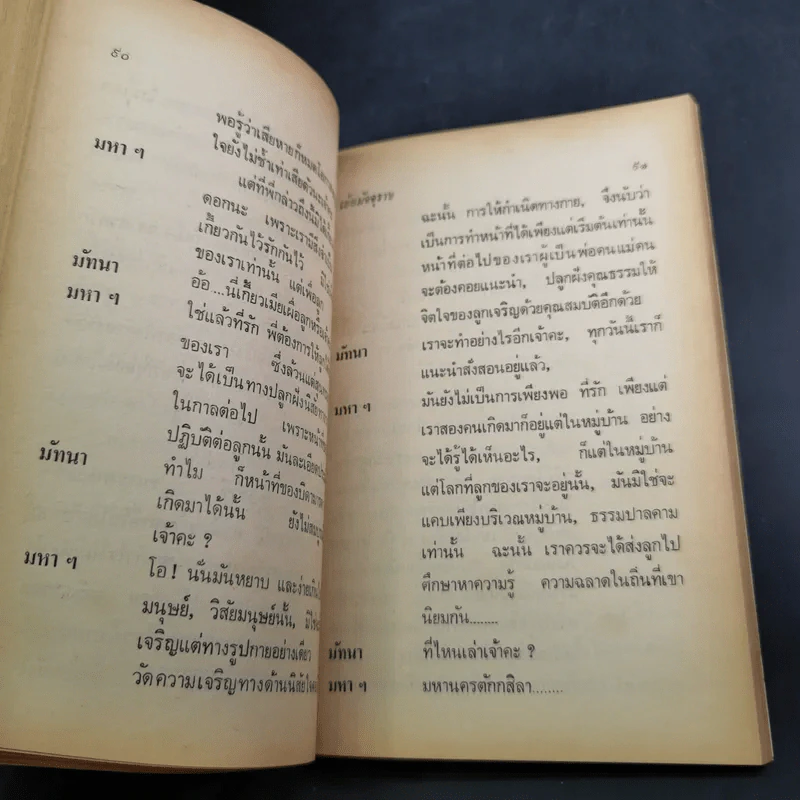 ๙๐
พอรู้ว่าเสียหายก็หมดโอกาส
มหา ๆ ใจยังไม่ช้ำเท่าเสียตัวนะ
แต่ที่พี่กล่าวถึงนี้มิได้
ดอกนะ เพราะเรามีสิ่ง
เกี้ยวกันไว้รักกันไว้
มัทนา ของเราเท่านั้น แต่เพื่อลูก
มหา ๆ อ้อ...นี่เกี้ยวเมียเผื่อลูกหรือ
ใช่แล้วที่รัก พี่ต้องการให้
ของเรา ซึ่งล้วนแต่
จะได้เป็นทางปลูกฝังนิสัย
ในกาลต่อไป เพราะหน้าที่
ปฏิบัติต่อลูกนั้น มันละเอียด
มัทนา ทำไม ก็หน้าที่ของบิดามารดา
เกิดมาได้นั้น ยังไม่สมบูรณ์
เจ้าคะ ?
มหา ๆ โอ! นั่นมันหยาบ และง่ายเกินไป
มนุษย์, วิสัยมนุษย์นั้น, มิใช่
เจริญแต่ทางรูปกายอย่างเดียว
วัดความเจริญทางด้านนิสัยใจคอ
๙๑
ฉะนั้น การให้กำเนิดทางกาย, จึงนับว่า
เป็นการทำหน้าที่ได้เพียงแต่เริ่มต้นเท่านั้น
หน้าที่ต่อไปของเราผู้เป็นพ่อคนแม่คน
จะต้องคอยแนะนำ, ปลูกฝังคุณธรรมให้
จิตใจของลูกเจริญด้วยคุณสมบัติอีกด้วย
มัทนา เราจะทำอย่างไรอีกเจ้าคะ, ทุกวันนี้เราก็
แนะนำสั่งสอนอยู่แล้ว,
มหา ๆ มันยังไม่เป็นการเพียงพอ ที่รัก เพียงแต่
เราสองคนเกิดมาก็อยู่แต่ในหมู่บ้าน อย่าง
จะได้รู้ได้เห็นอะไร, ก็แต่ในหมู่บ้าน
แต่โลกที่ลูกของเราจะอยู่นั้น, มันมิใช่จะ
แคบเพียงบริเวณหมู่บ้าน, ธรรมปาลคาม
เท่านั้น ฉะนั้น เราควรจะได้ส่งลูกไป
ศึกษาหาความรู้ ความฉลาดในถิ่นที่เขา
นิยมกัน........
มัทนา ที่ไหนเล่าเจ้าคะ ?
มหา ๆ มหานครตักกสิลา........